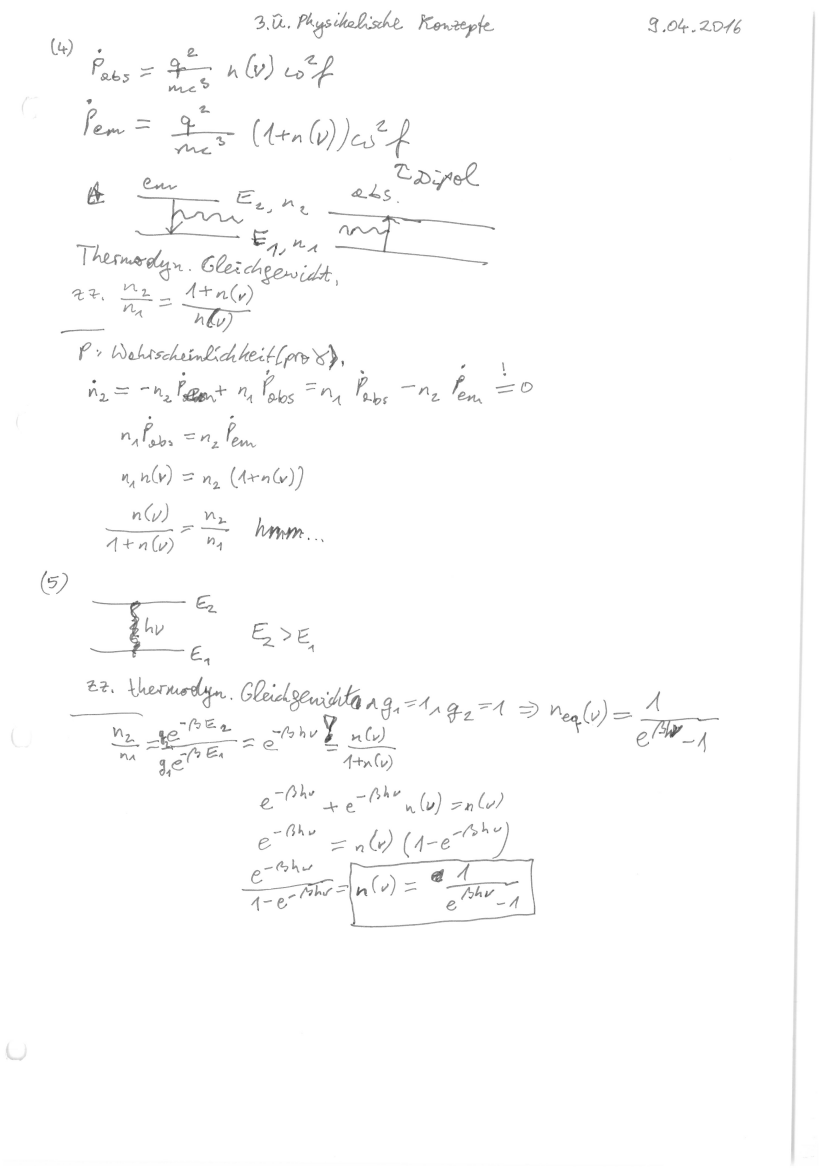 3.Ü. Physikalische Konzepte 9.04.2016
(4) Ṗabs = q²/mc³ n(ν) ω²f
Ṗem = q²/mc³ (1+n(ν)) ω²f
↑Dipol
em E₂, n₂ abs.
E₁, n₁
Thermodyn. Gleichgewicht,
zz. n₂/n₁ = (1+n(ν))/n(ν)
P: Wahrscheinlichkeit (pro γ),
ṅ₂ = -n₂ Ṗem + n₁ Ṗabs = n₁ Ṗabs - n₂ Ṗem =! 0
n₁Ṗabs = n₂Ṗem
n₁n(ν) = n₂ (1+n(ν))
n(ν)/(1+n(ν)) = n₂/n₁ hmm...
(5)
E₂
hν E₂ > E₁
E₁
zz. thermodyn. Gleichgewicht ∧ g₁=1 ∧ g₂=1 ⇒ neq(ν) = 1/(e^(βhν)-1)
n₂/n₁ = g₂e^(-βE₂)/g₁e^(-βE₁) = e^(-βhν) =! n(ν)/(1+n(ν))
e^(-βhν) + e^(-βhν) n(ν) = n(ν)
e^(-βhν) = n(ν) (1-e^(-βhν))
e^(-βhν)/(1-e^(-βhν)) = n(ν) = 1/(e^(βhν)-1)